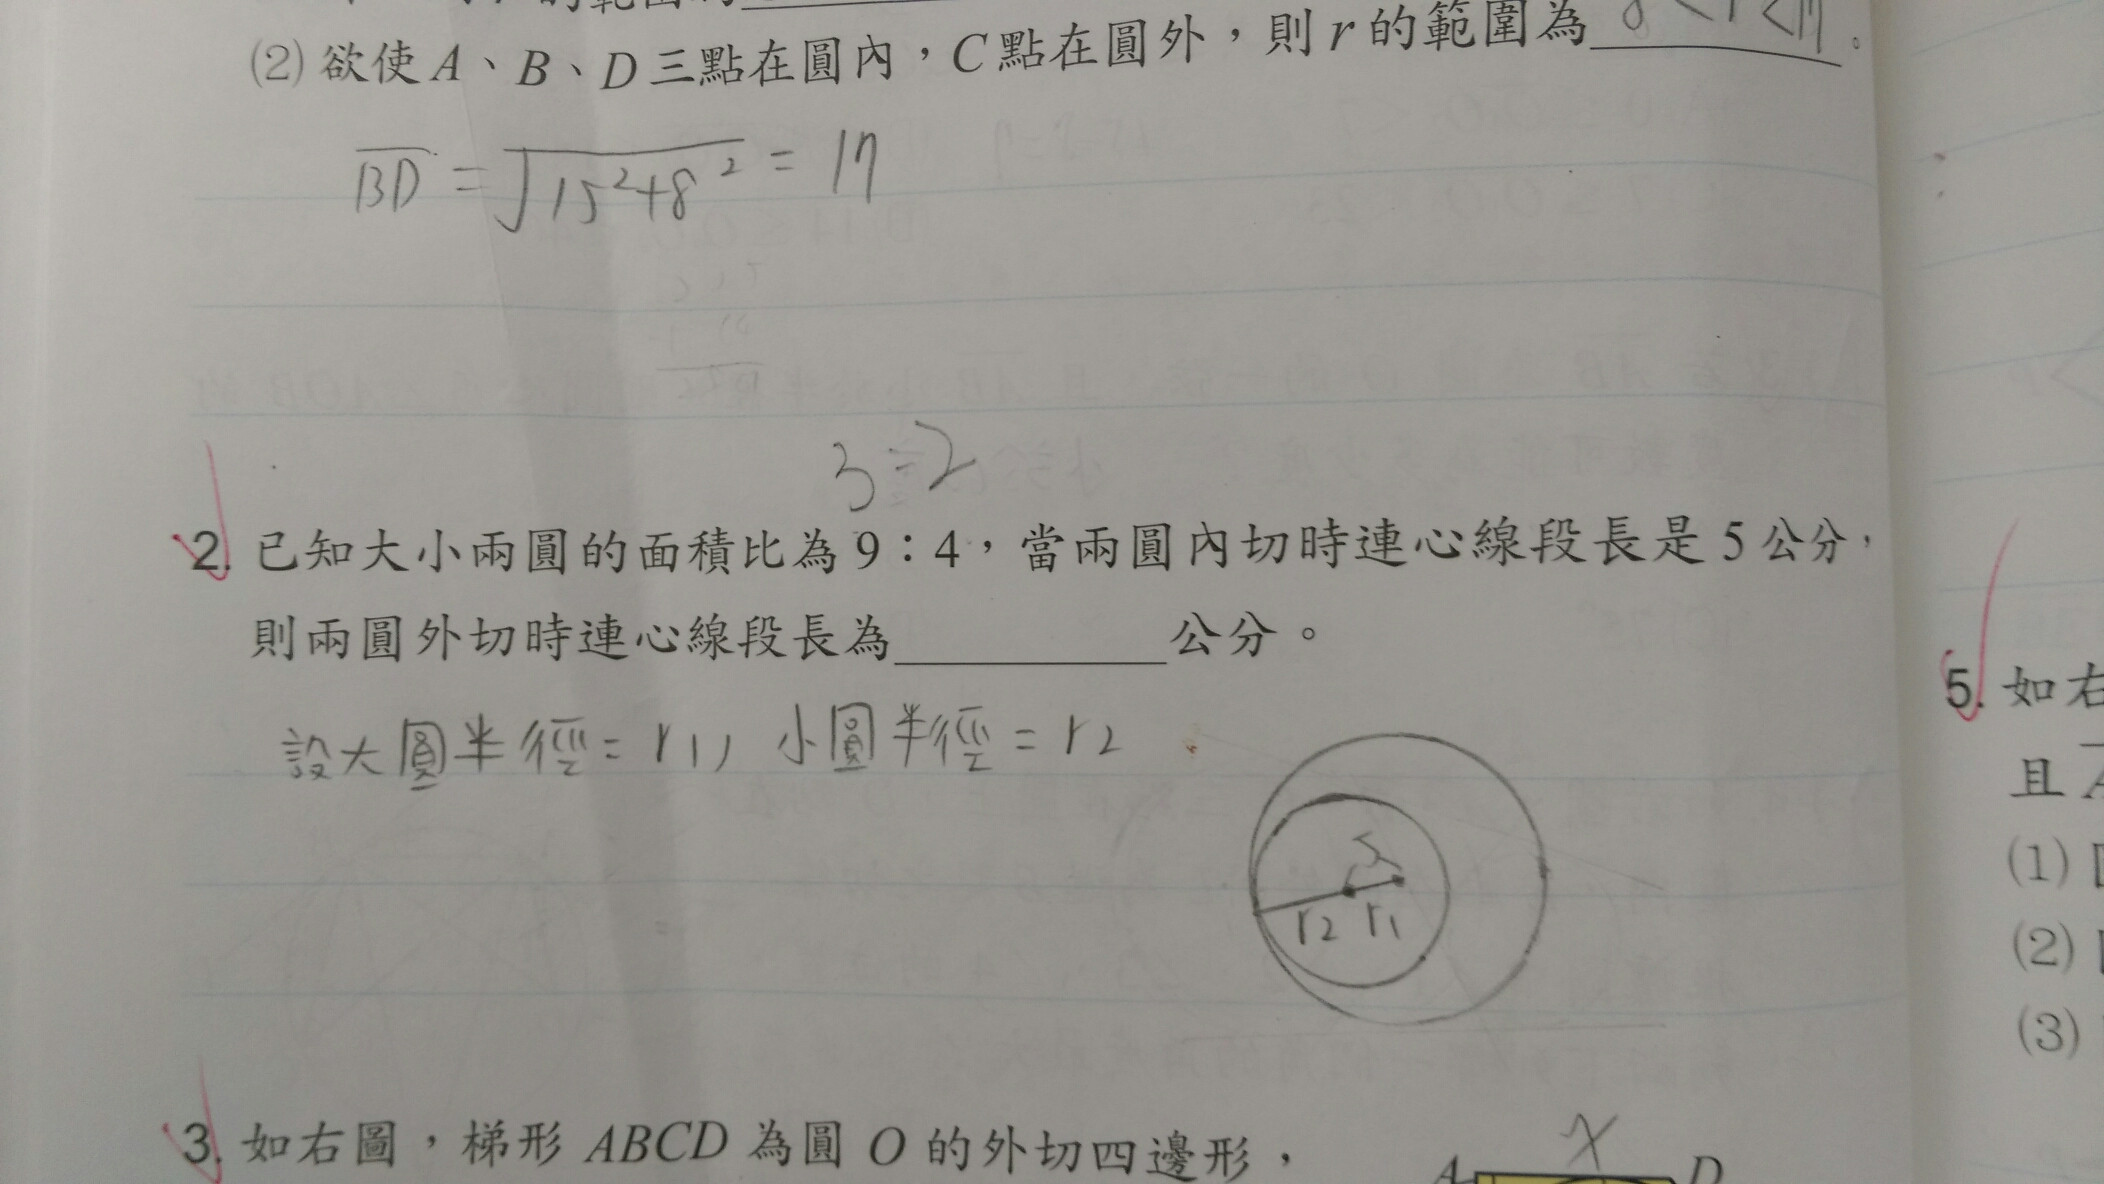 (2) 欲使 A、B、D 三點在圓內，C 點在圓外，則 r 的範圍為 8<r<17。
BD = √15²+8² = 17
3:2
2. 已知大小兩圓的面積比為 9：4，當兩圓內切時連心線段長是 5 公分，
則兩圓外切時連心線段長為__________公分。
設大圓半徑=r1, 小圓半徑=r2
5
r2 r1
3. 如右圖，梯形 ABCD 為圓 O 的外切四邊形，
x
A D
5. 如右
且
(1)
(2)
(3)